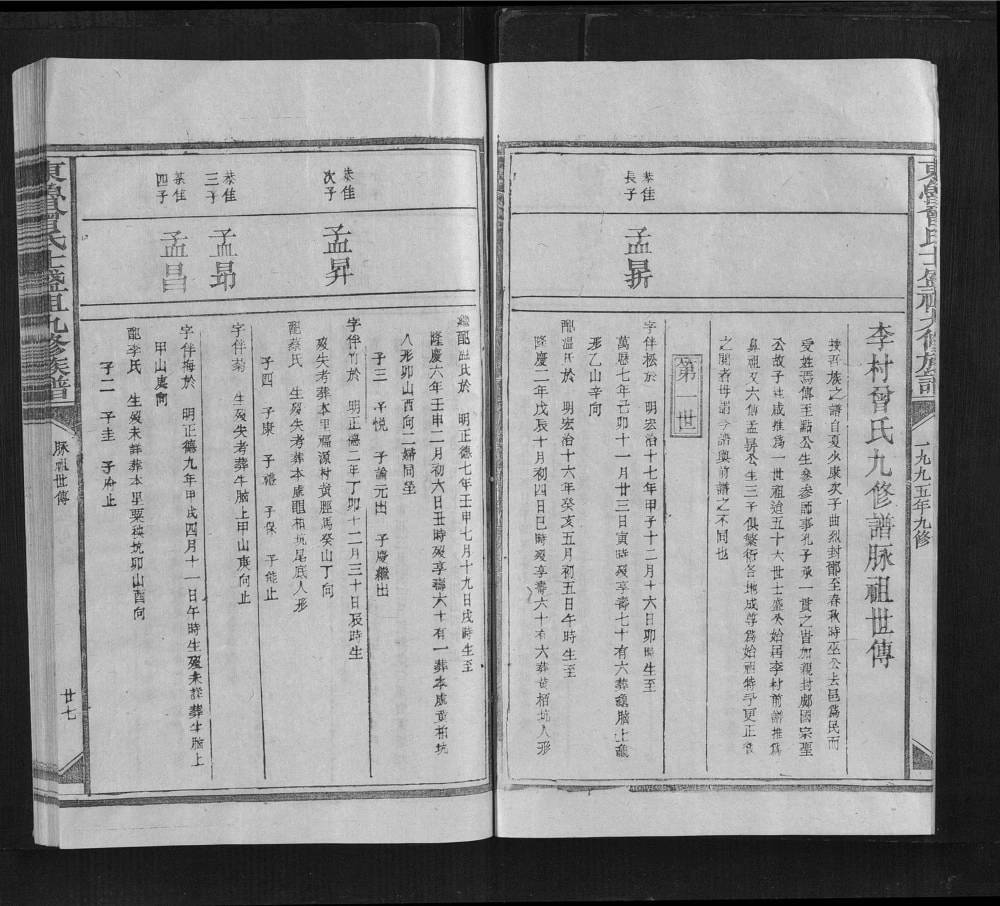 東魯曾氏士盛祖九修族譜
一九九五年九修
李村曾氏九修譜脉祖世傳
族吾族之譜自夏少康次子曲烈封鄫至春秋時巫公去邑爲民而
受姓焉傳至點公生參參師事孔子承一貫之旨加親封郕國宗聖
公故子姓咸推爲一世祖迨五十六世士盛公始居李村前譜推爲
鼻祖又六傳孟昇公生三子俱繁衍各地咸尊爲始祖特予更正
之閱者毋謂今譜與前譜之不同也
第一世
恭佳
長子
孟昦
字伴松於 明宏治十七年甲子十二月十六日卯時生至
萬曆七年己卯十一月廿三日寅時歿享壽七十有六葬龜腦上
形乙山辛向
配溫氏於 明宏治十六年癸亥五月初五日午時生至
隆慶二年戊辰十月初四日巳時歿享壽六十有六葬黄栢坑人形
繼配温氏於 明正德七年壬申七月十九日戌時生至
隆慶六年壬申二月初六日丑時歿享壽六十有一葬本處黄柏坑
人形卯山酉向二婦同塋
子三 子悦 子論元出 子慶繼出
恭佳
次子
孟昇
字伴竹於 明正德二年丁卯十二月三十日辰時生
歿失考葬本里福源村黄脛馬癸山丁向
配蔡氏 生歿失考葬本處䀜栢坑尾底人形
子四 子康 子禮 子保 子能止
恭佳
三子
孟昂
字伴菊 生歿失考葬牛腦上甲山庚向止
恭佳
四子
孟昌
字伴梅於 明正德九年甲戌四月十一日午時生歿未詳葬牛腦上
甲山庚向
配李氏 生歿未詳葬本里粟秧坑卯山酉向
子二 子圭 子府止
東魯曾氏士盛祖九修族譜
脉祖世傳
廿七